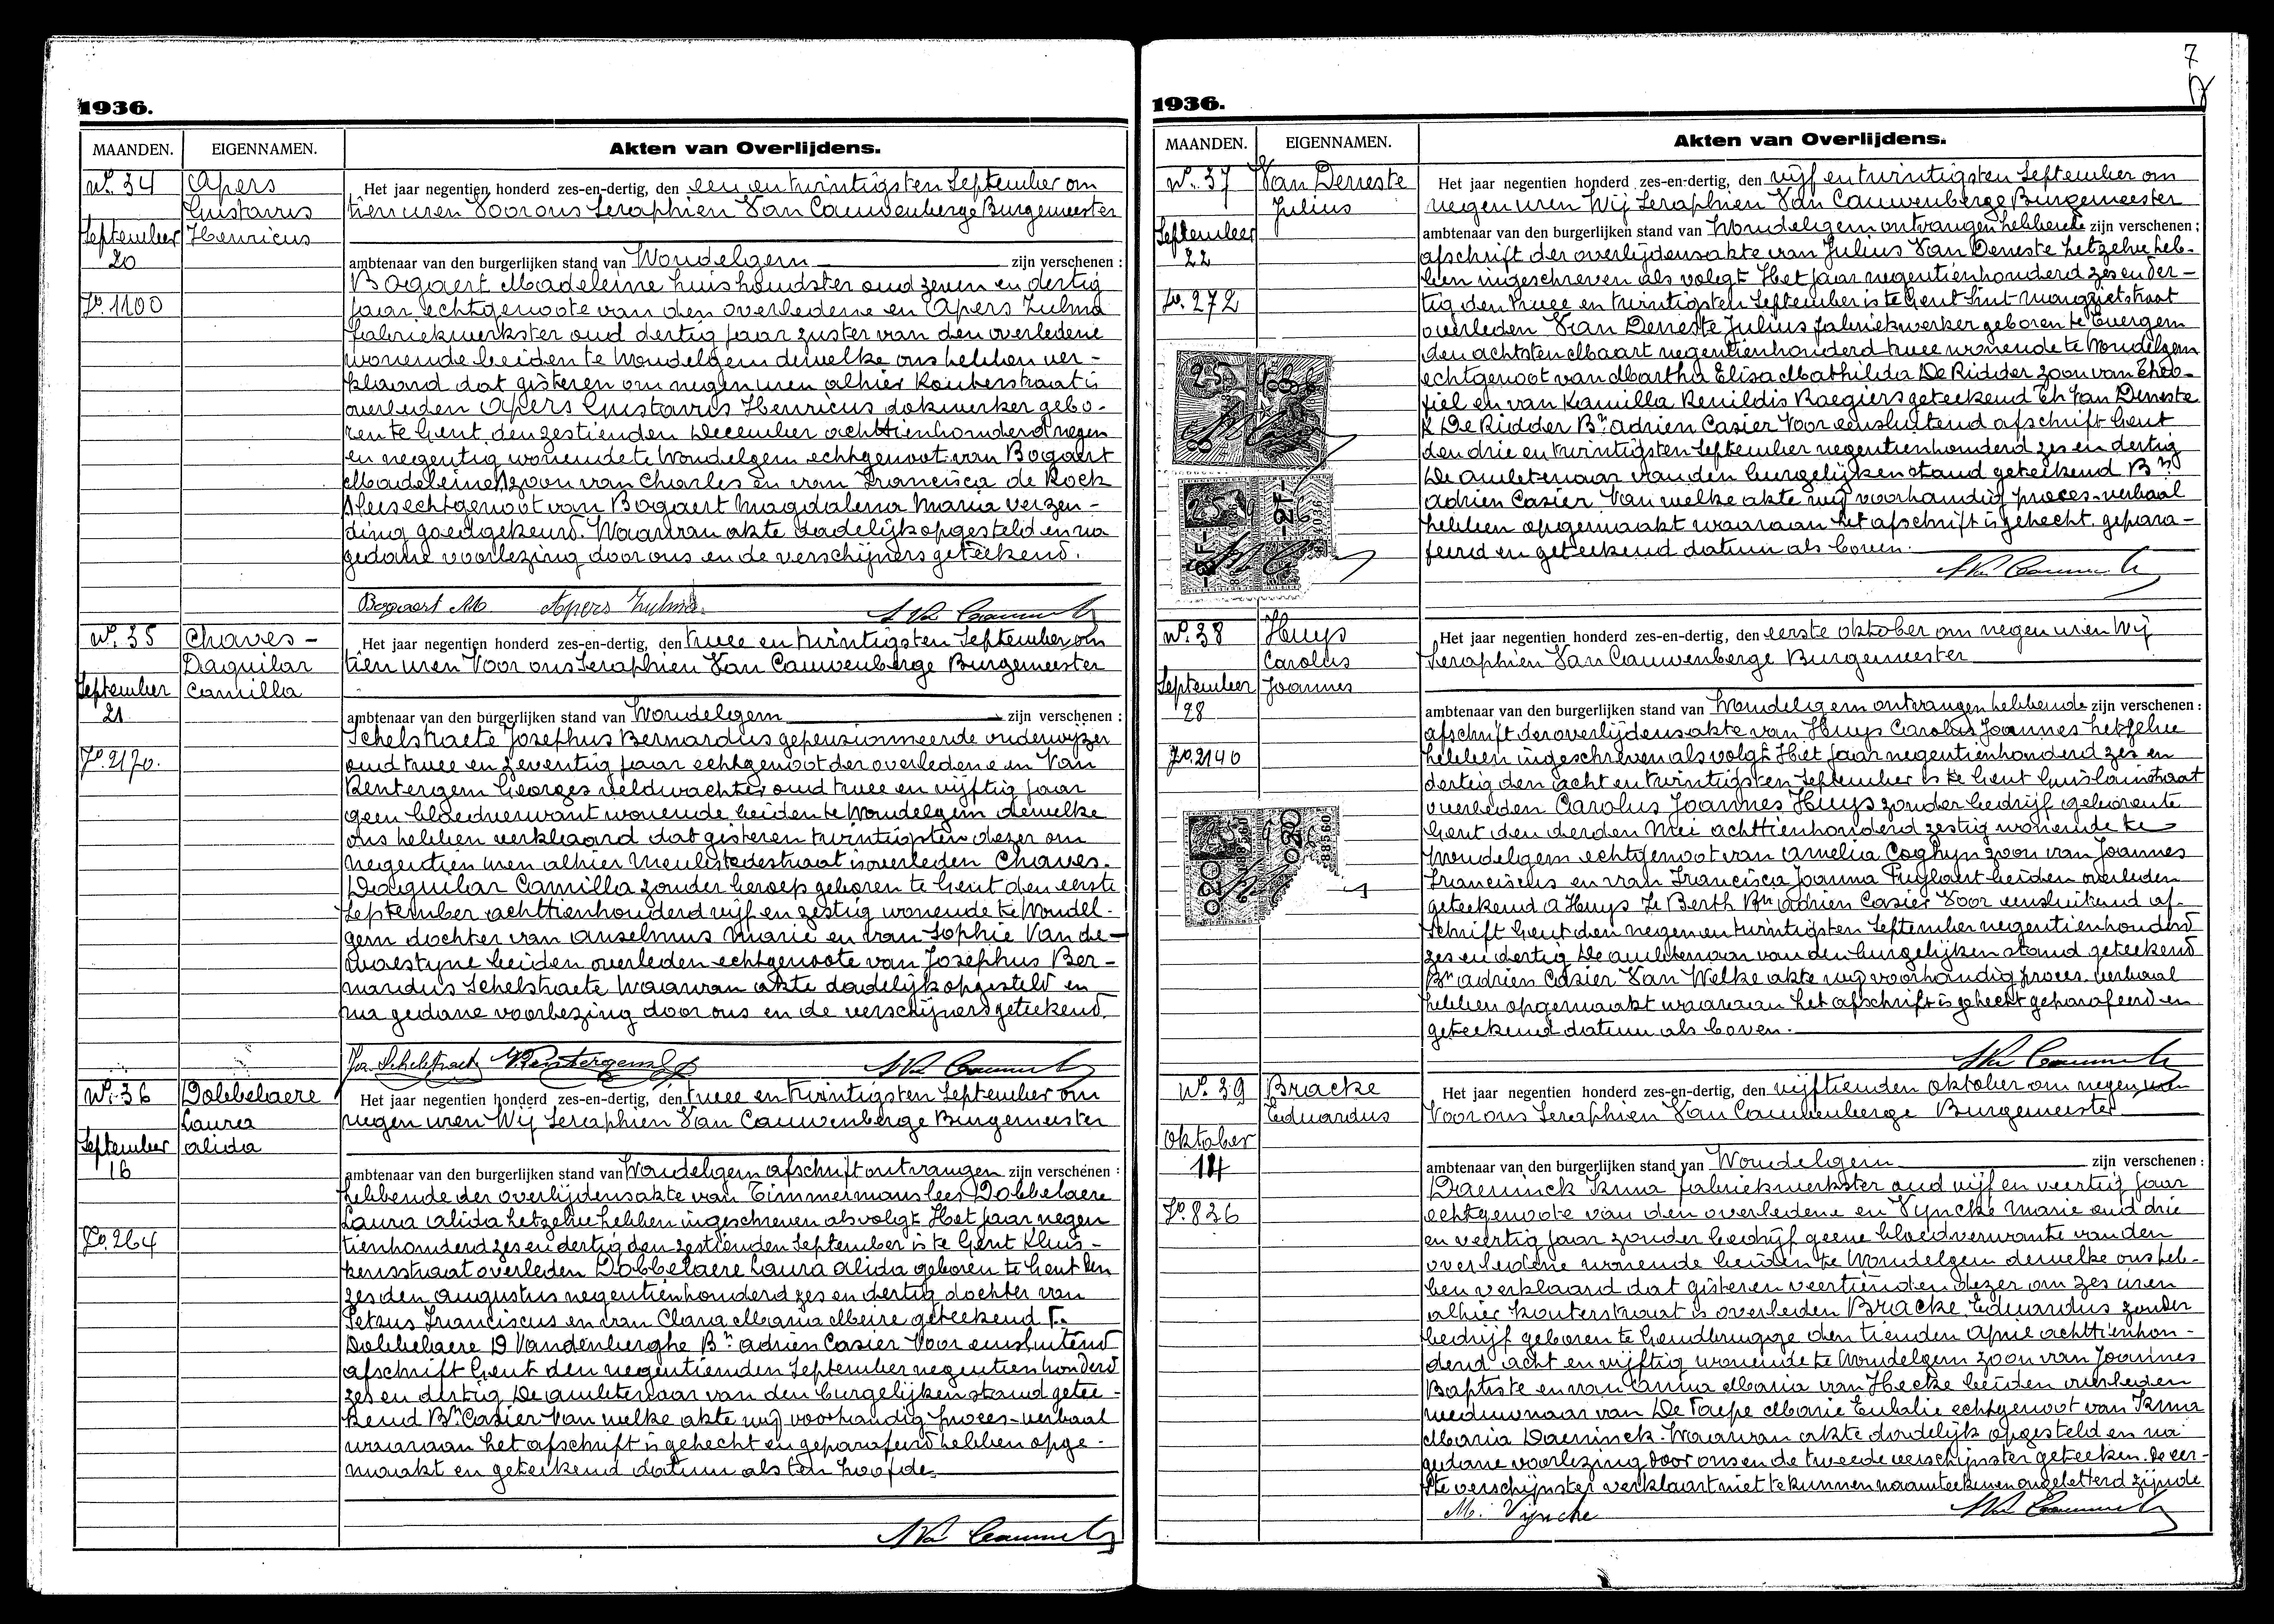 1936.
MAANDEN. EIGENNAMEN. Akten van Overlijdens.
No. 34
September
20
Fo. 1100
Apers
Gustavus
Henricus
Het jaar negentien honderd zes-en-dertig, den een en twintigsten September om
tien uren Voor ons Seraphien Van Cauwenberge Burgemeester
ambtenaar van den burgerlijken stand van Wondelgem zijn verschenen :
Bogaert Madeleine huishoudster oud zeven en dertig
jaar echtgenoote van den overledene en Apers Zulma
fabriekwerkster oud dertig jaar zuster van den overledene
wonende beiden te Wondelgem dewelke ons hebben ver-
klaard dat gisteren om negen uren alhier Kouterstraat is
overleden Apers Gustavus Henricus dokwerker gebo-
ren te Gent den zestienden December achttienhonderd negen
en negentig wonende te Wondelgem echtgenoot van Bogaert
Madeleine zoon van Charles en van Francisca de Kock
lees echtgenoot van Bogaert Magdalena Maria verzen-
ding goedgekeurd. Waarvan akte dadelijk opgesteld en na
gedane voorlezing door ons en de verschijners geteekend.
Bogaert M. Apers Zulma
No. 35
September
21
Fo. 2170.
Chaves-
Daguilar
Camilla
Het jaar negentien honderd zes-en-dertig, den twee en twintigsten September om
tien uren Voor ons Seraphien Van Cauwenberge Burgemeester
ambtenaar van den burgerlijken stand van Wondelgem zijn verschenen :
Schelstraete Josephus Bernardus gepensionneerde onderwyzer
oud twee en zeventig jaar echtgenoot der overledene en Van
Rentergem Georges veldwachter oud twee en vijftig jaar
geen bloedverwant wonende beiden te Wondelgem dewelke
ons hebben verklaard dat gisteren twintigsten dezer om
negentien uren alhier Meulestedestraat is overleden Chaves-
Daguilar Camilla zonder beroep geboren te Gent den eerste
September achttienhonderd vijf en zestig wonende te Wondel-
gem dochter van Anselmus Marie en van Sophie Van de-
woestyne beiden overleden echtgenoote van Josephus Ber-
nardus Schelstraete Waarvan akte dadelijk opgesteld en
na gedane voorlezing door ons en de verschijners geteekend.
Jos. Schelstraete VRentergem G
No. 36
September
16
Fo. 264
Dobbelaere
Laura
Alida
Het jaar negentien honderd zes-en-dertig, den twee en twintigsten September om
negen uren Wij Seraphien Van Cauwenberge Burgemeester
ambtenaar van den burgerlijken stand van Wondelgem afschrift ontvangen zijn verschenen :
hebbende der overlijdensakte van Timmermans lees Dobbelaere
Laura Alida hetzelve hebben ingeschreven als volgt Het jaar negen
tienhonderd zes en dertig den zestienden September is te Gent Kluis-
kensstraat overleden Dobbelaere Laura Alida geboren te Gent den
zesden Augustus negentienhonderd zes en dertig dochter van
Petrus Franciscus en van Clara Maria Meire geteekend F.
Dobbelaere D Vandenberghe Bn Adrien Casier Voor eensluitend
afschrift Gent den negentienden September negentienhonderd
zes en dertig De ambtenaar van den burgelijken stand getee-
kend Bn Casier Van welke akte wij voorhandig proces-verbaal
waaraan het afschrift is gehecht en geparafeerd hebben opge-
maakt en geteekend datum als ten hoofde.
7
1936.
MAANDEN. EIGENNAMEN. Akten van Overlijdens.
No. 37
September
22
Fo. 272
Van Deneste
Julius
Het jaar negentien honderd zes-en-dertig, den vijf en twintigsten September om
negen uren Wij Seraphien Van Cauwenberge Burgemeester
ambtenaar van den burgerlijken stand van Wondelgem ontvangen hebbende zijn verschenen :
afschrift der overlijdensakte van Julius Van Deneste hetzelve heb-
ben ingeschreven als volgt Het jaar negentienhonderd zes en der-
tig den twee en twintigsten September is te Gent Sint-Margrietstraat
overleden Van Deneste Julius fabriekwerker geboren te Evergem
den achtsten Maart negentienhonderd twee wonende te Wondelgem
echtgenoot van Martha Elisa Mathilda De Ridder zoon van Theo-
fiel en van Kamilla Renildis Baegiers geteekend Th Van Deneste
R De Ridder Bn Adrien Casier Voor eensluitend afschrift Gent
den drie en twintigsten September negentienhonderd zes en dertig
De ambtenaar van den burgelijken stand geteekend Bn
Adrien Casier Van welke akte wij voorhandig proces-verbaal
hebben opgemaakt waaraan het afschrift is gehecht. gepara-
feerd en geteekend datum als boven.
No. 38
September
28
Fo. 2140
Huys
Carolus
Joannes
Het jaar negentien honderd zes-en-dertig, den eerste oktober om negen uren Wij
Seraphien Van Cauwenberge Burgemeester
ambtenaar van den burgerlijken stand van Wondelgem ontvangen hebbende zijn verschenen :
afschrift der overlijdensakte van Huys Carolus Joannes hetzelve
hebben ingeschreven als volgt Het jaar negentienhonderd zes en
dertig den acht en twintigsten September is te Gent Guislainstraat
overleden Carolus Joannes Huys zonder bedrijf geboren te
Gent den derden Mei achttienhonderd zestig wonende te
Wondelgem echtgenoot van Amelia Coghyn zoon van Joannes
Franciscus en van Francisca Joanna beiden overleden
geteekend A Huys Berth Bn Adrien Casier Voor eensluitend af-
schrift Gent den negen en twintigsten September negentienhonderd
zes en dertig De ambtenaar van den burgelijken stand geteekend
Bn Adrien Casier Van Welke akte wij voorhandig proces-verbaal
hebben opgemaakt waaraan het afschrift is gehecht geparafeerd en
geteekend datum als boven.
No. 39
Oktober
14
Fo. 836
Bracke
Eduardus
Het jaar negentien honderd zes-en-dertig, den vijftienden oktober om negen uren
Voor ons Seraphien Van Cauwenberge Burgemeester
ambtenaar van den burgerlijken stand van Wondelgem zijn verschenen :
Daeninck Irma fabriekwerkster oud vijf en veertig jaar
echtgenoote van den overledene en Vyncke Marie oud drie
en veertig jaar zonder bedrijf geene bloedverwante van den
overledene wonende beiden te Wondelgem dewelke ons heb-
ben verklaard dat gisteren veertienden dezer om zes uren
alhier Kouterstraat is overleden Bracke Eduardus zonder
bedrijf geboren te Gendbrugge den tienden April achttienhon-
derd acht en vijftig wonende te Wondelgem zoon van Joannes
Baptiste en van Anna Maria van Hecke beiden overleden
weduwnaar van De Taepe Marie Eulalie echtgenoot van Irma
Maria Daeninck. Waarvan akte dadelijk opgesteld en na
gedane voorlezing door ons en de tweede verschijnster geteeken. De eer-
ste verschijnster verklaart niet te kunnen naamteekenen ongeletterd zijnde
M. Vyncke